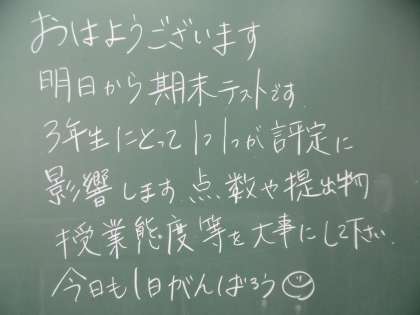 おはようございます
明日から期末テストです
3年生にとって1つ1つが評定に
影響します.点数や提出物
授業態度等を大事にして下さい.
今日も1日がんばろう☺